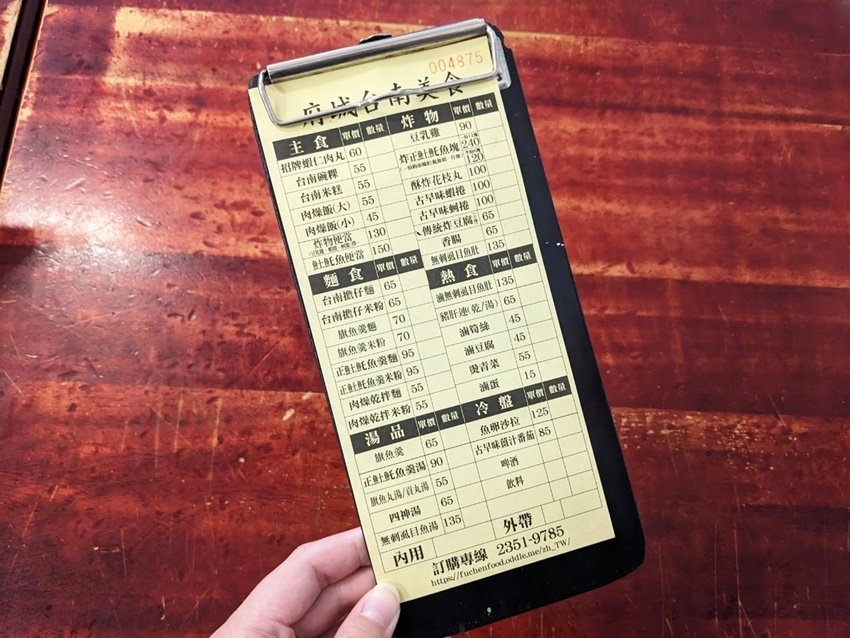 004875
府城台南美食
主食 單價 數量
招牌蝦仁肉丸 60
台南碗粿 55
台南米糕 55
肉燥飯(大) 55
肉燥飯(小) 45
炸物便當 130
𩵚魠魚便當 150
麵食 單價 數量
台南擔仔麵 65
台南擔仔米粉 65
旗魚羹麵 70
旗魚羹米粉 70
正𩵚魠魚羹麵 95
正𩵚魠魚羹米粉 95
肉燥乾拌麵 55
肉燥乾拌米粉 55
湯品 單價 數量
旗魚羹 65
正𩵚魠魚羹湯 90
旗魚丸湯/貢丸湯 55
四神湯 65
無刺虱目魚湯 135
炸物 單價 數量
豆乳雞 90
炸正𩵚魠魚塊 240 120
酥炸花枝丸 100
古早味蝦捲 100
古早味蚵捲 100
傳統炸豆腐 65
香腸 65
無刺虱目魚肚 135
熱食 單價 數量
滷無刺虱目魚肚 135
豬肝連(乾/湯) 65
滷筍絲 45
滷豆腐 45
燙青菜 55
滷蛋 15
冷盤 單價 數量
魚卵沙拉 125
古早味薑汁番茄 85
啤酒
飲料
內用 外帶
訂購專線 2351-9785
https://fuchenfood.oddle.me/zh_TW/